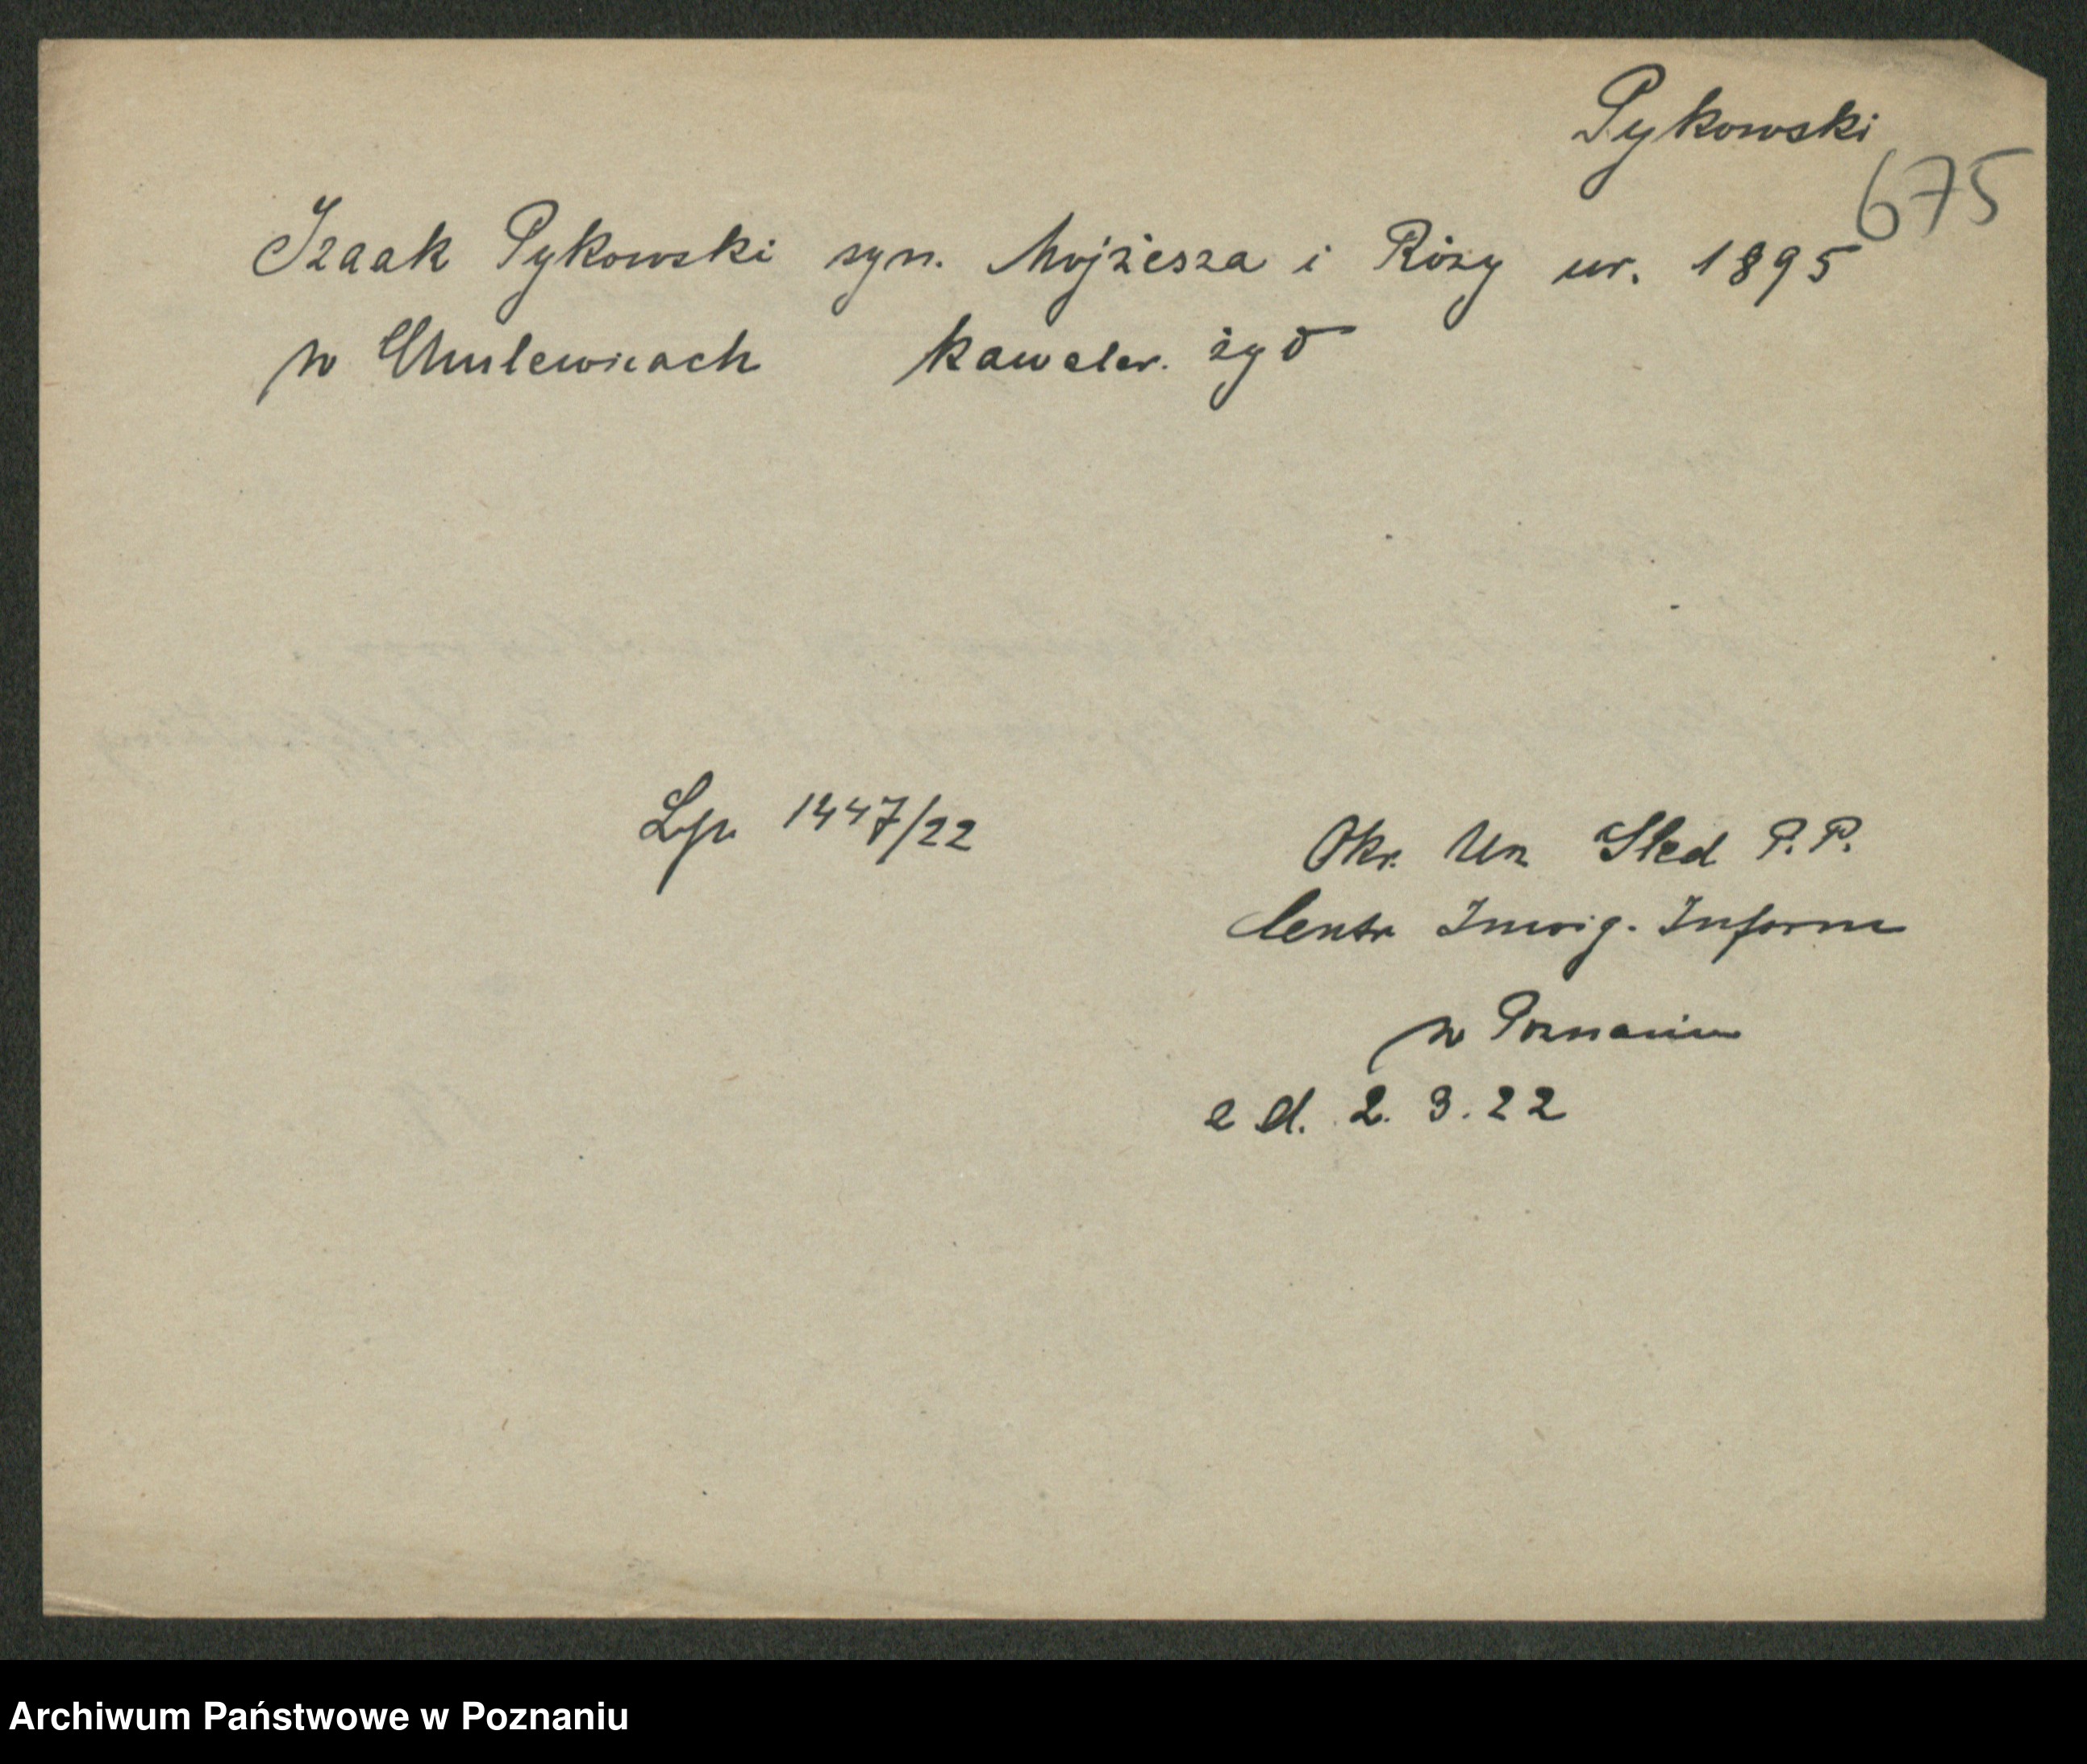 Pykowski
675
Izaak Pykowski syn. Mojżesza i Róży ur. 1895
w Chulewicach kawaler. żyd
Lp 1447/22
Okr. Urz Sled P.P.
Centr Inwig. Inform
w Poznaniu
e d. 2. 3. 22
Archiwum Państwowe w Poznaniu